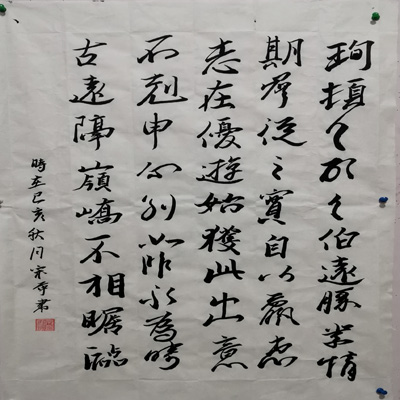 珣頓首頓首伯遠勝業情
期群從之寶自以羸患
志在優遊始獲此出意
不剋申分別如昨永為疇
古遠隔嶺嶠不相瞻臨
時在己亥秋月宋書